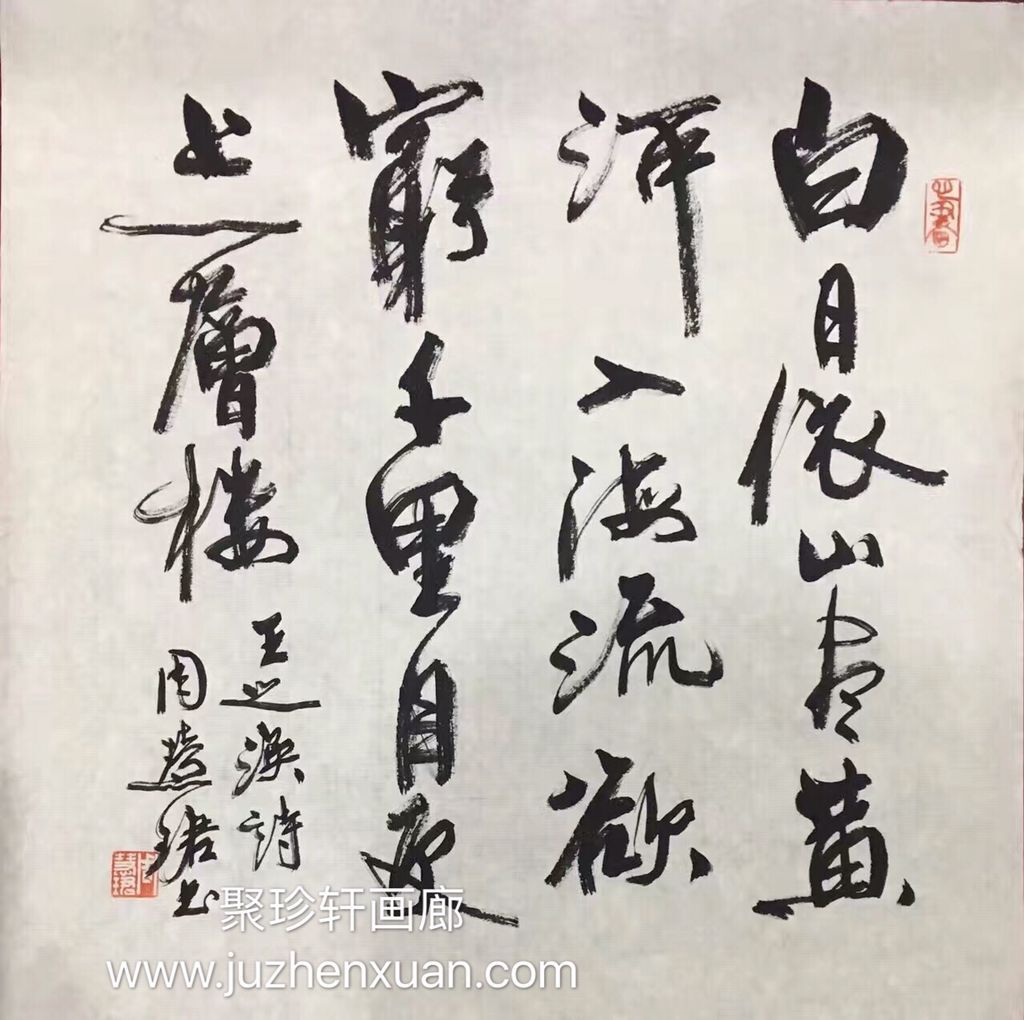 白日依山尽黄
河入海流欲
窮千里目更
上一層楼
王之涣詩
周慧珺书
聚珍轩画廊
www.juzhenxuan.com